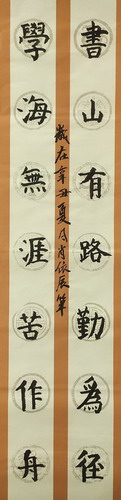 書山有路勤為徑
學海無涯苦作舟
歲在辛丑夏月肖依辰筆